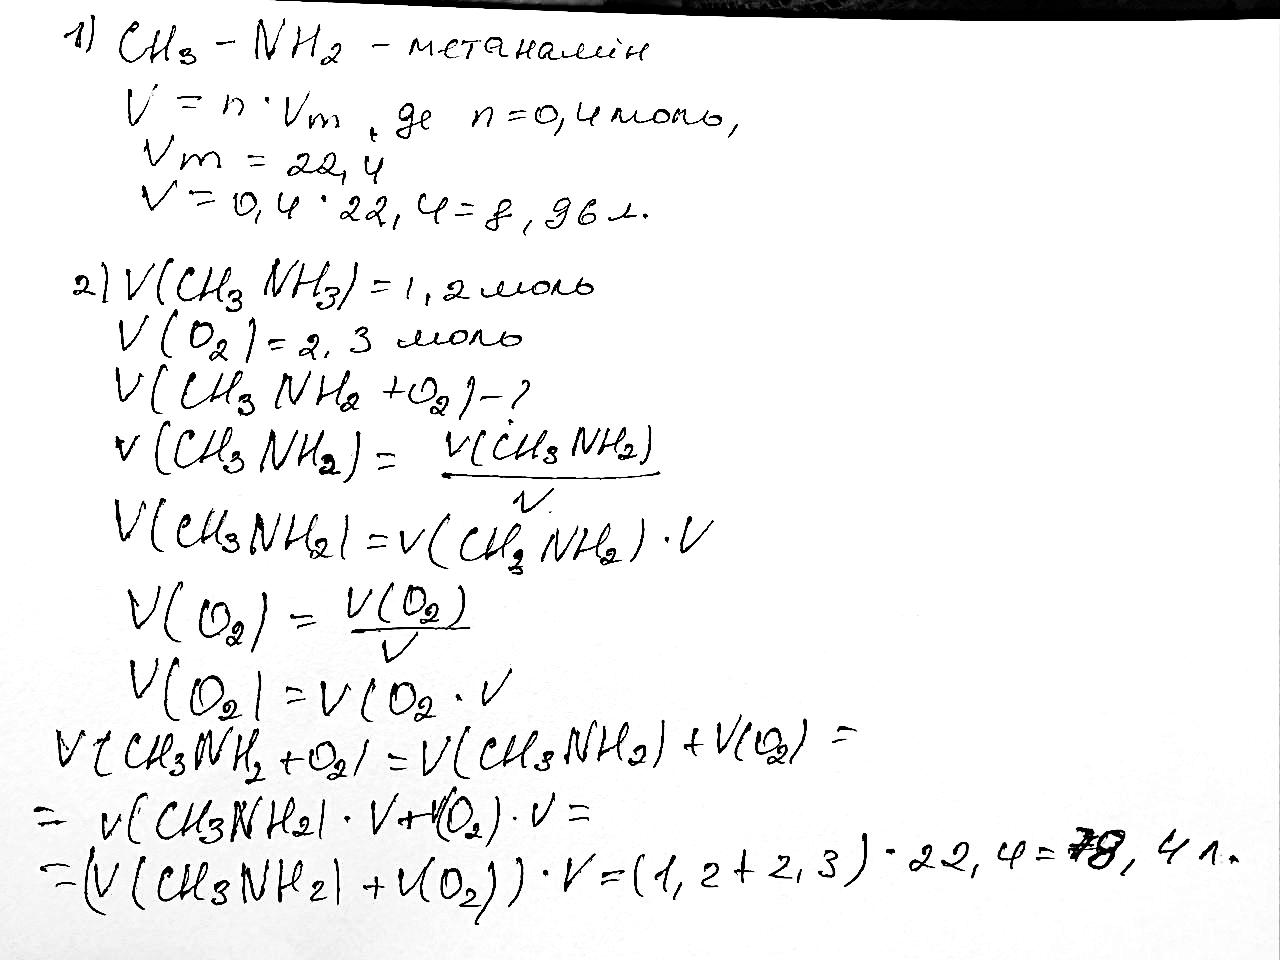 1) CH₃ - NH₂ - метанамін
V = n · Vm, де n = 0,4 моль,
Vm = 22,4
V = 0,4 · 22,4 = 8,96 л.
2) V(CH₃ NH₃) = 1,2 моль
V(O₂) = 2,3 моль
V(CH₃ NH₂ + O₂) - ?
v(CH₃ NH₂) = V(CH₃ NH₂) / V
V(CH₃NH₂) = v(CH₃ NH₂) · V
V(O₂) = V(O₂) / V
V(O₂) = V(O₂ · V
V(CH₃NH₂ + O₂) = V(CH₃NH₂) + V(O₂) =
= v(CH₃NH₂) · V + V(O₂) · V =
= (V(CH₃NH₂) + V(O₂)) · V = (1,2 + 2,3) · 22,4 = 78,4 л.